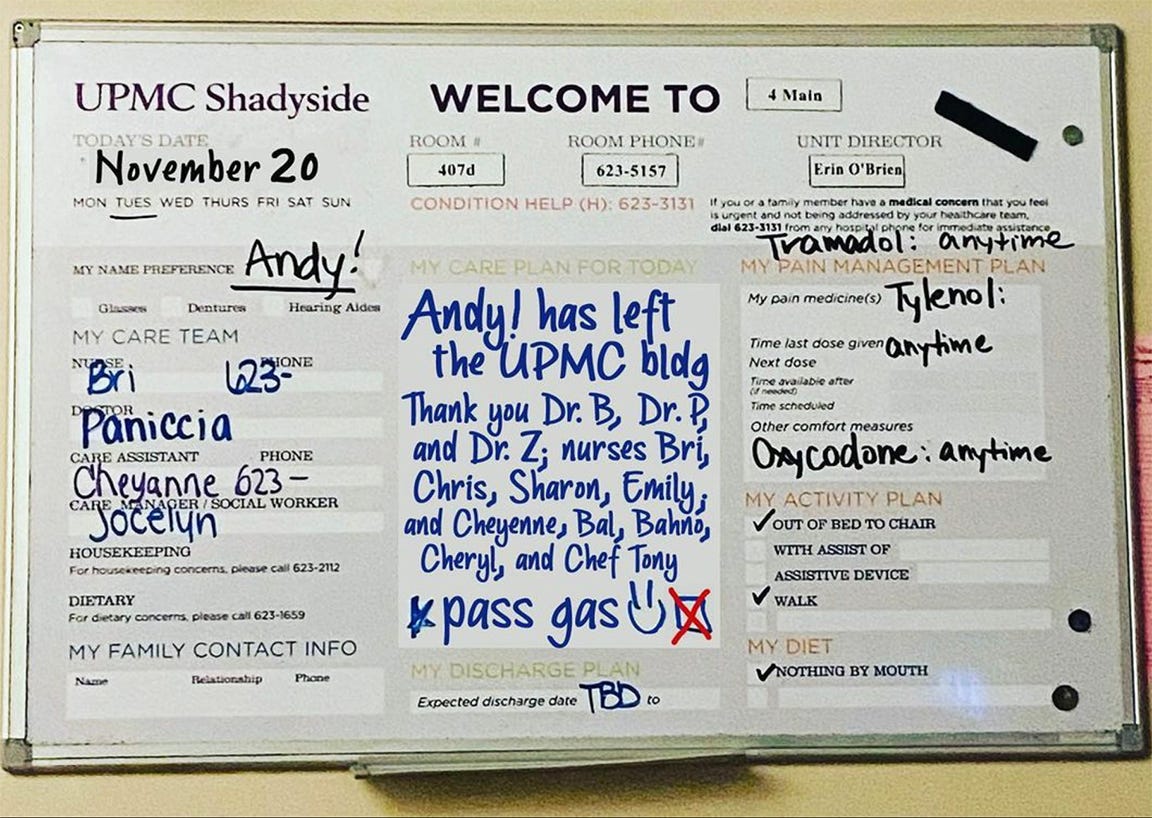 UPMC Shadyside
WELCOME TO
4 Main
TODAY'S DATE
November 20
MON TUES WED THURS FRI SAT SUN
ROOM #
407d
ROOM PHONE#
623-5157
UNIT DIRECTOR
Erin O'Brien
CONDITION HELP (H): 623-3131
If you or a family member have a medical concern that you feel
is urgent and not being addressed by your healthcare team,
dial 623-3131 from any hospital phone for immediate assistance
MY NAME PREFERENCE Andy!
Glasses Dentures Hearing Aides
MY CARE TEAM
NURSE PHONE
Bri 623-
DOCTOR
Paniccia
CARE ASSISTANT PHONE
Cheyanne 623-
CARE MANAGER / SOCIAL WORKER
Jocelyn
HOUSEKEEPING
For housekeeping concerns, please call 623-2112
DIETARY
For dietary concerns, please call 623-1659
MY FAMILY CONTACT INFO
Name Relationship Phone
MY CARE PLAN FOR TODAY
Andy! has left
the UPMC bldg
Thank you Dr. B, Dr. P,
and Dr. Z; nurses Bri,
Chris, Sharon, Emily;
and Cheyenne, Bal, Bahno,
Cheryl, and Chef Tony
pass gas
MY DISCHARGE PLAN
Expected discharge date TBD to
Tramadol: anytime
MY PAIN MANAGEMENT PLAN
My pain medicine(s) Tylenol:
Time last dose given anytime
Next dose
Time available after
(if needed)
Time scheduled
Other comfort measures
Oxycodone: anytime
MY ACTIVITY PLAN
OUT OF BED TO CHAIR
WITH ASSIST OF
ASSISTIVE DEVICE
WALK
MY DIET
NOTHING BY MOUTH